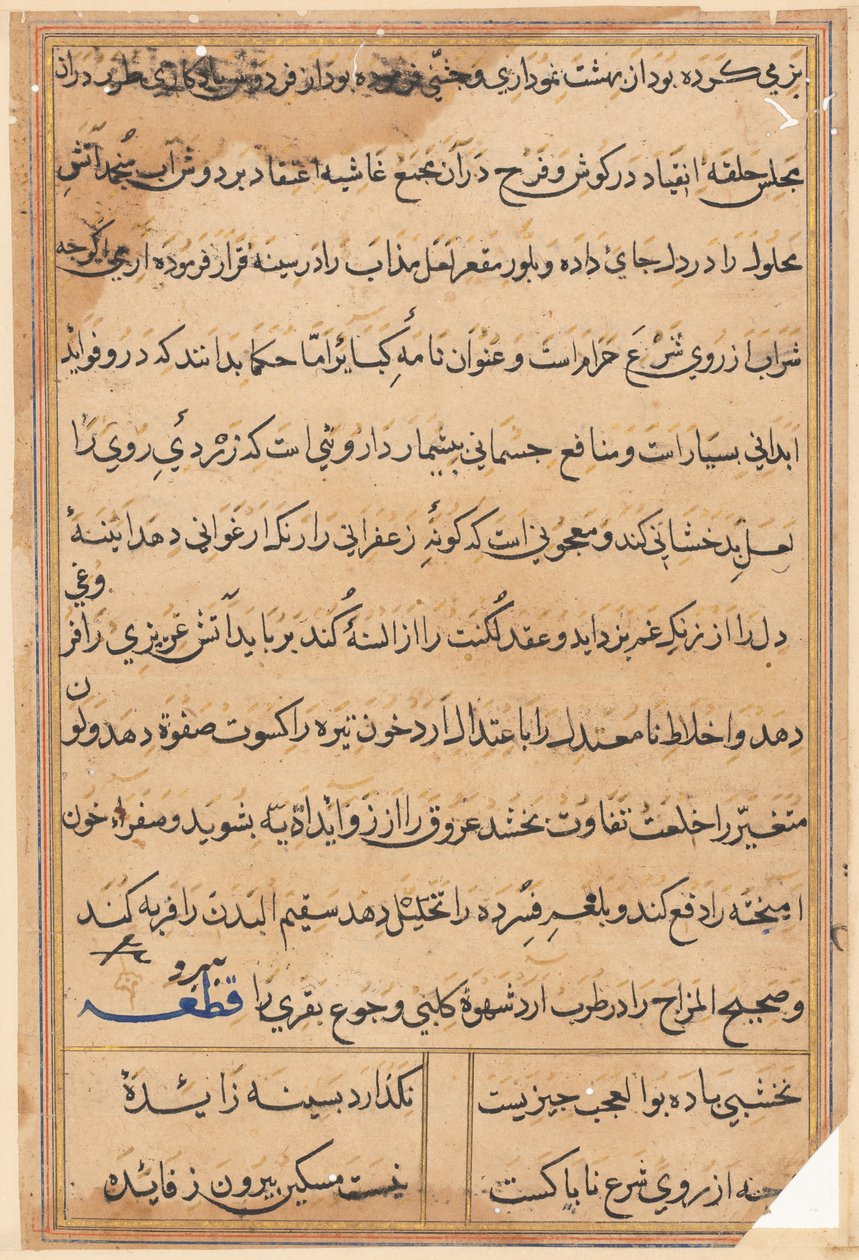 بزمی کرده بود از بهشت نموداری و جشنی فرموده بود از فردوس یادکاری طرب دران
مجلس حلقهٔ انقیاد در کوش و فرح دران مجمع غاشیه اعتقاد بر دوش آب منجمد آتش
محلول را در دل جای داده و بلور مقعر لعل مذاب را در سینه قرار فرموده اری می اکرچه
شراب از روی شرع حرام است و عنوان نامهٔ کبایر امّا حکما بدانند که درو فواید
ابدانی بسیار است و منافع جسمانی بیشمار داروئی است که زردئ روی را
لعل بدخشانی کند و معجونی است که کونهٔ زعفرانی را رنک ارغوانی دهد اینهٔ
دل را از زنک غم بزداید و عقد لکنت را از السنهٔ کند برباید آتش غریزی را فروغی
دهد و اخلاط نامعتدل را باعتدال ارد خون تیره را کسوت صفوة دهد و لون
متغیّر را خلعت تفاوت بخشد عروق را از زواید ادّیه بشوید و صفراء خون
امیخته را دفع کند و بلغم فسرده را تحلیل دهد سقیم البدن را فربه کند
و صحیح المزاج را در طرب ارد شهوة کلبی و جوع بقری را ببرد قطعه
نخشبی باده بوالعجب چیزیست نکذارد بسینه زایدهٔ
چه از روی شرع ناپاکست نیست مسکین بیرون ز فایده